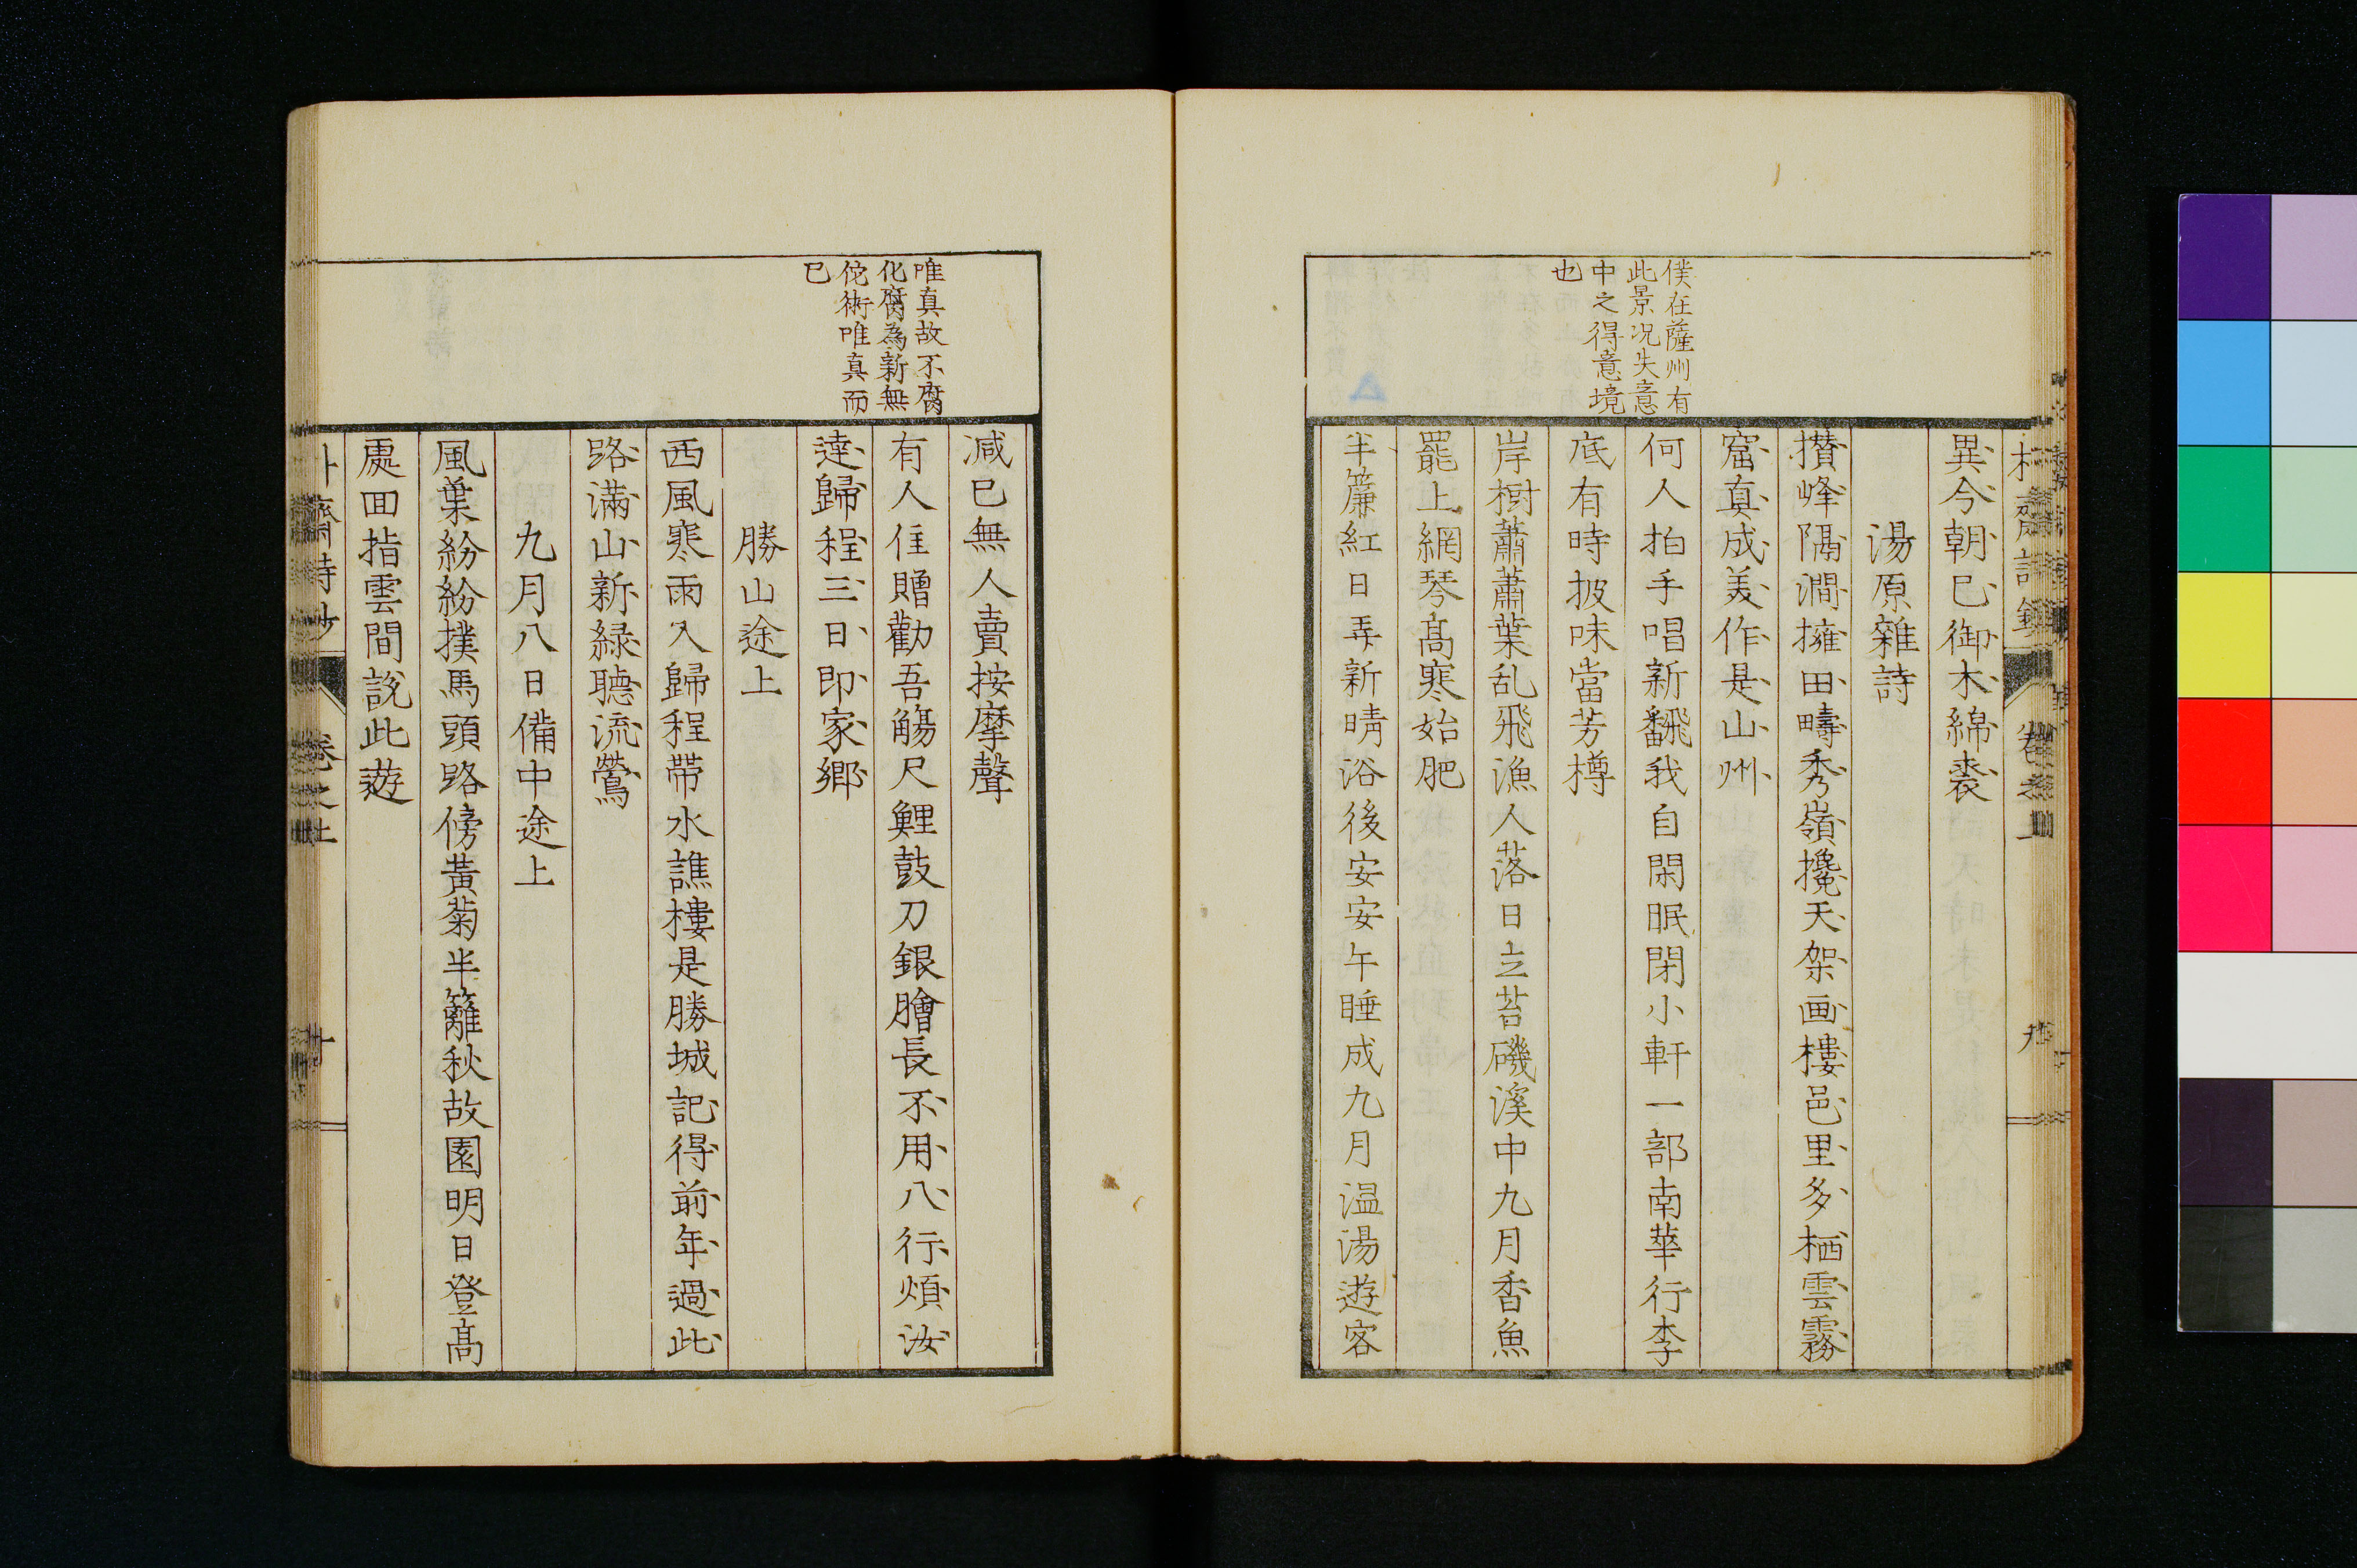 僕在薩州有
此景况失意
中之得意境
也
異今朝已御木綿裘
湯原雜詩
攢峰隔澗擁田疇秀嶺攙天架画樓邑里多栖雲霧
窟真成美作是山州
何人拍手唱新翻我自閑眠閉小軒一部南華行李
底有時披味當芳樽
岸樹蕭蕭葉乱飛漁人落日立苔磯溪中九月香魚
罷上網琴髙寒始肥
半簾紅日弄新晴浴後安安午睡成九月温湯遊客
唯真故不腐
化腐為新無
佗術唯真而
已
減已無人賣按摩聲
有人隹贈勸吾觴尺鯉鼓刀銀膾長不用八行煩汝
達歸程三日即家鄉
勝山途上
西風寒雨入歸程帶水譙樓是勝城記得前年過此
路滿山新緑聴流鶯
九月八日備中途上
風葉紛紛撲馬頭路傍黃菊半籬秋故園明日登髙
處囬指雲間說此遊